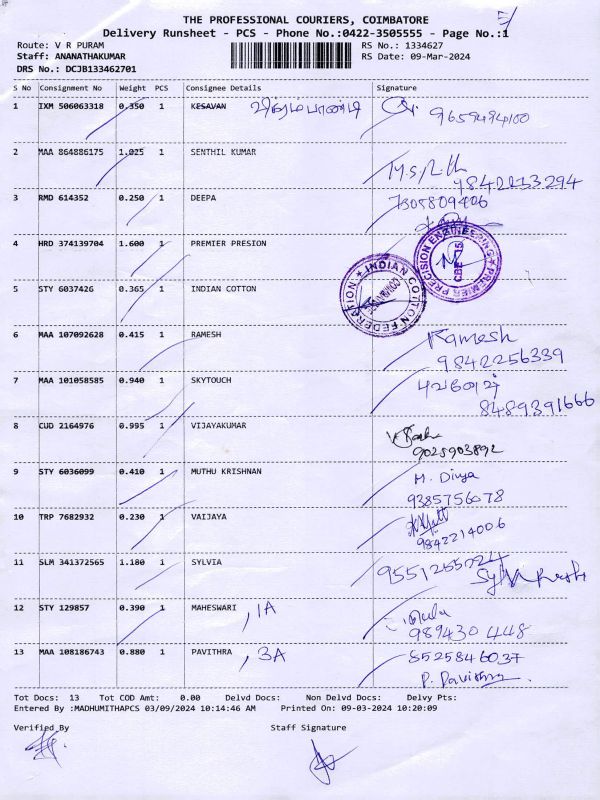 THE PROFESSIONAL COURIERS, COIMBATORE
Delivery Runsheet - PCS - Phone No.:0422-3505555 - Page No.:1
Route: V R PURAM
RS No.: 1334627
Staff: ANANATHAKUMAR
RS Date: 09-Mar-2024
DRS No.: DCJB133462701
S No Consignment No Weight PCS Consignee Details Signature
1 IXM 506063318 0.350 1 KESAVAN 9659494100
2 MAA 864886175 1.025 1 SENTHIL KUMAR
9842233294
3 RMD 614352 0.250 1 DEEPA 7305809406
4 HRD 374139704 1.600 1 PREMIER PRESION
PREMIER PRECISION ENGINEERING
5 STY 6037426 0.365 1 INDIAN COTTON
INDIAN COTTON FEDERATION
6 MAA 107092628 0.415 1 RAMESH Ramesh
9842256339
7 MAA 101058585 0.940 1 SKYTOUCH
8489391666
8 CUD 2164976 0.995 1 VIJAYAKUMAR
9025903892
9 STY 6036099 0.410 1 MUTHU KRISHNAN M. Divya
9385756078
10 TRP 7682932 0.230 1 VAIJAYA
9842214006
11 SLM 341372565 1.180 1 SYLVIA
12 STY 129857 0.390 1 MAHESWARI , 1A
989430 448
13 MAA 108186743 0.880 1 PAVITHRA , 3A 8525846037
P. Pavithra
Tot Docs: 13 Tot COD Amt: 0.00 Delvd Docs: Non Delvd Docs: Delvy Pts:
Entered By :MADHUMITHAPCS 03/09/2024 10:14:46 AM Printed On: 09-03-2024 10:20:09
Verified By Staff Signature